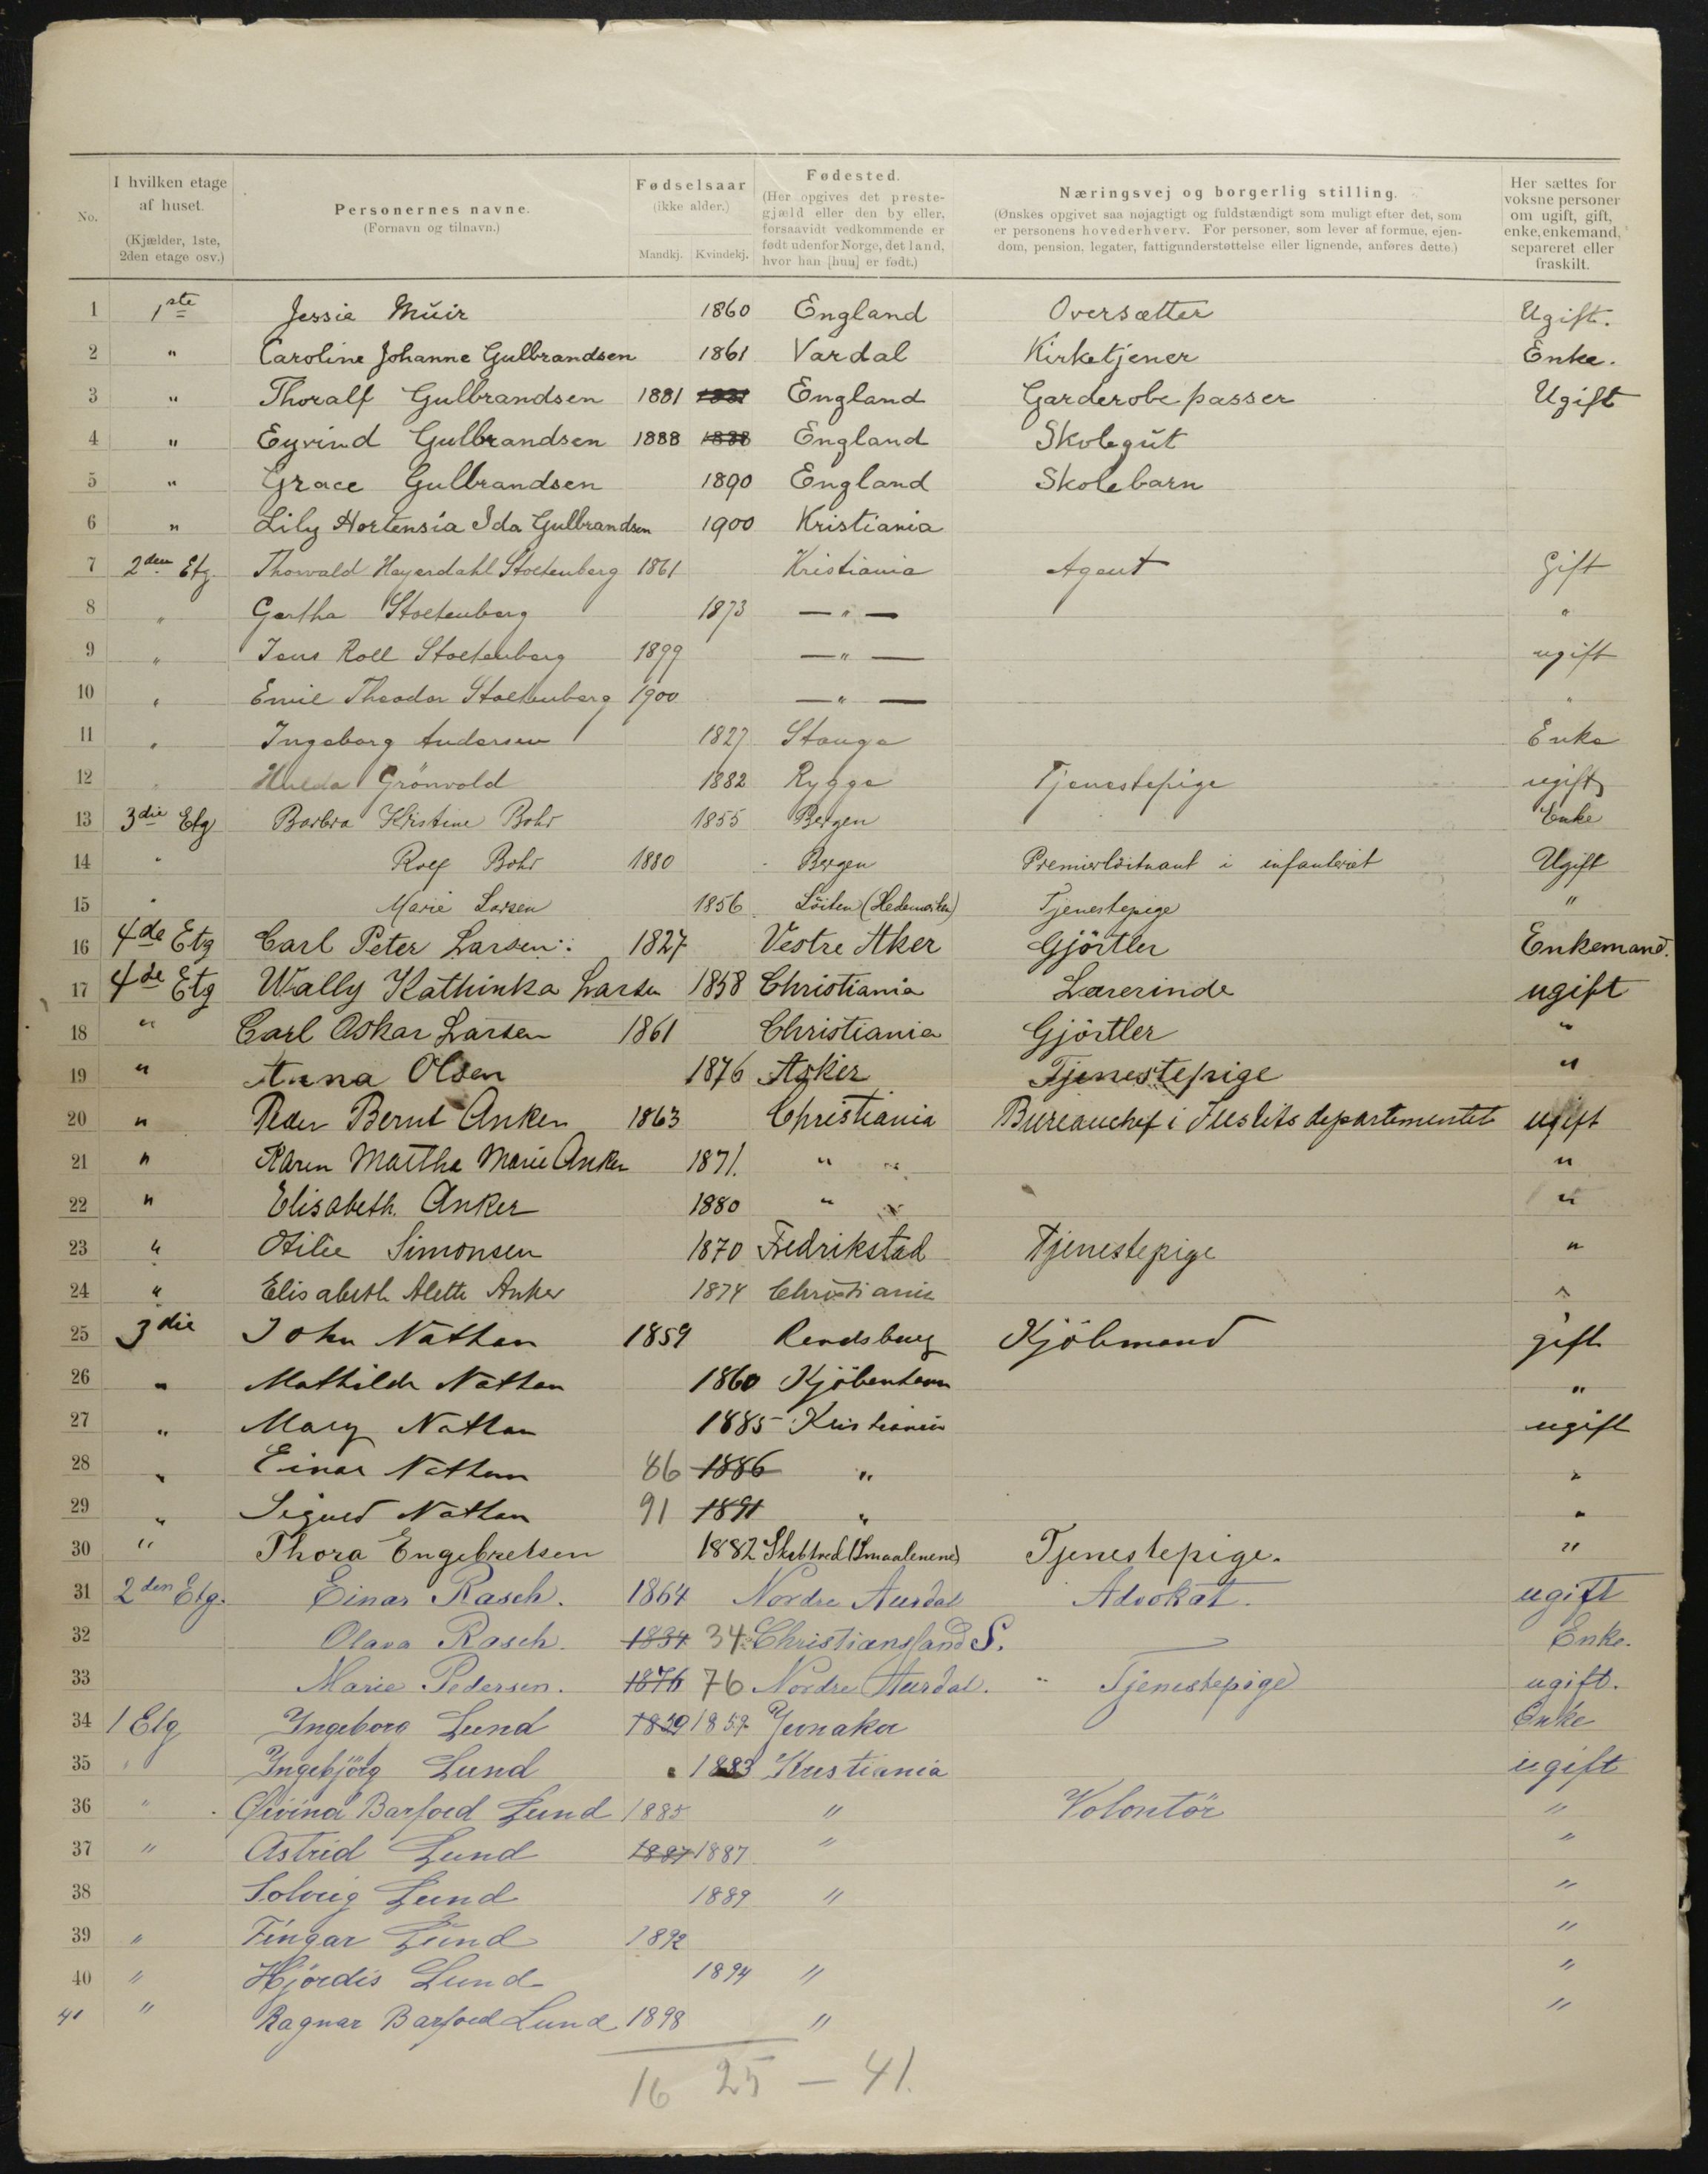 No. I hvilken etage af huset. (Kjælder, 1ste, 2den etage osv.) Personernes navne. (Fornavn og tilnavn.) Fødselsaar (ikke alder.) Mandkj. Kvindekj. Fødested. (Her opgives det prestegjæld eller den by eller, forsaavidt vedkommende er født udenfor Norge, det land, hvor han [hun] er født.) Næringsvej og borgerlig stilling. (Ønskes opgivet saa nøjagtigt og fuldstændigt som muligt efter det, som er personens hovederhverv. For personer, som lever af formue, ejendom, pension, legater, fattigunderstøttelse eller lignende, anføres dette.) Her sættes for voksne personer om ugift, gift, enke, enkemand, separeret eller fraskilt.
1 1ste Jessie Muir 1860 England Oversætter Ugift.
2 " Caroline Johanne Gulbrandsen 1861 Vardal Kirketjener Enke.
3 " Thoralf Gulbrandsen 1881 1881 England Garderobepasser Ugift
4 " Eyvind Gulbrandsen 1888 1888 England Skolegut
5 " Grace Gulbrandsen 1890 England Skolebarn
6 " Lily Hortensia Ida Gulbrandsen 1900 Kristiania
7 2den Etg. Thorvald Heyerdahl Stoltenberg 1861 Kristiania Agent Gift
8 " Gertha Stoltenberg 1873 — " — "
9 " Jens Roll Stoltenberg 1899 — " — ugift
10 " Emil Theodor Stoltenberg 1900 — " — "
11 " Ingeborg Andersen 1827 Stange Enke
12 " Hulda Grönvold 1882 Rygge Tjenestepige ugift
13 3die Etg Barbra Kristine Bohr 1855 Bergen Enke
14 " Rolf Bohr 1880 Bergen Premierlöitnant i infanteriet Ugift
15 " Marie Larsen 1856 Löiten (Hedemarken) Tjenestepige "
16 4de Etg Carl Peter Larsen 1827 Vestre Aker Gjörtler Enkemand.
17 4de Etg Wally Kathinka Larsen 1858 Christiania Lærerinde ugift
18 " Carl Oskar Larsen 1861 Christiania Gjörtler "
19 " Anna Olsen 1876 Asker Tjenestepige "
20 " Peder Bernt Anker 1863 Christiania Bureauchef i Justitsdepartementet ugift
21 " Karen Martha Marie Anker 1871. " " "
22 " Elisabeth Anker 1880 " " "
23 " Otilie Simonsen 1870 Fredrikstad Tjenestepige "
24 " Elisabeth Alette Anker 1874 Christiania "
25 3die John Nathan 1859 Rendsburg Kjöbmand gift
26 " Mathilde Nathan 1860 Kjöbenhavn "
27 " Mary Nathan 1885 Kristiania ugift
28 " Einar Nathan 86 1886 " "
29 " Sigurd Nathan 91 1891 " "
30 " Thora Engebretsen 1882 Skibtved (Smaalenene) Tjenestepige. "
31 2den Etg. Einar Rasch. 1864 Nordre Aurdal Advokat. ugift
32 Olava Rasch. 1834 34 Christianssand S. — Enke.
33 Marie Pedersen. 1876 76 Nordre Aurdal. " Tjenestepige ugift.
34 1 Etg Ingeborg Lund 1859 1859 Jevnaker Enke
35 " Ingebjörg Lund 1883 Kristiania ugift
36 " Øivind Barfoed Lund 1885 " Volontör "
37 " Astrid Lund 1887 1887 " "
38 Solveig Lund 1889 " "
39 " Fingar Lund 1892 "
40 " Hjördis Lund 1894 " "
41 " Ragnar Barfoed Lund 1898 " "
16 25 — 41.